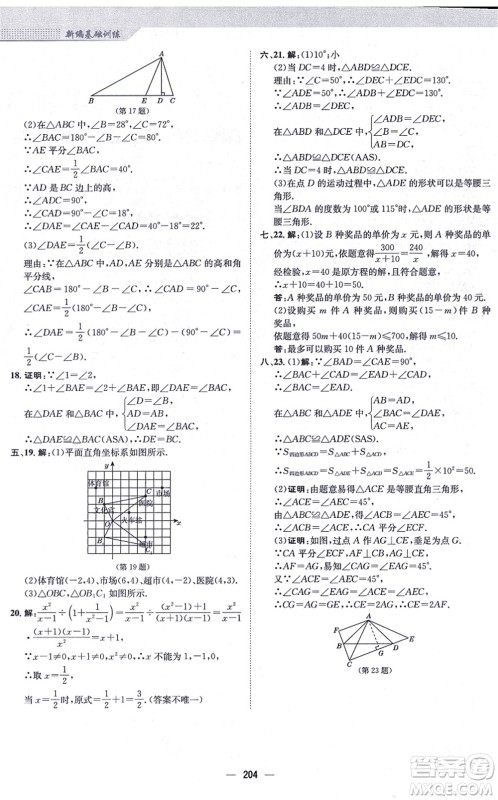 新编基础训练
A
B E D C
(第17题)
(2)在△ABC中,∠B=28°,∠C=72°.
∴∠BAC=180°-∠B-∠C=80°.
∵AE平分∠BAC,
∴∠CAE=1/2∠BAC=40°.
∵AD是BC边上的高,
∴∠CAD=90°-∠C=18°,
∴∠DAE=∠CAE-∠CAD=40°-18°=22°.
(3)∠DAE=1/2(∠C-∠B).
理由:∵AD,AE分别是△ABC的高和角
平分线,
∠CAB=180°-∠B-∠C,∠CAD=90°-∠C,
∴∠CAE=1/2∠CAB=90°-1/2(∠B+∠C),
∴∠DAE=90°-1/2(∠B+∠C)-(90°-∠C)=
1/2(∠C-∠B).
18.证明:∵∠1=∠2,
∴∠1+∠BAE=∠2+∠BAE,即∠DAE=∠BAC.
在△DAE和△BAC中,{∠D=∠B,
AD=AB,
∠DAE=∠BAC,
∴△DAE≌△BAC(ASA),∴DE=BC.
五、19.解:(1)平面直角坐标系如图所示.
体育馆
市场
医院
文化宫
火车站
超市
(第19题)
(2)体育馆(-2,4),市场(6,4),超市(4,-2),医院(4,3).
(3)△OBC,△OB₁C₁如图所示.
20.解:x²/(x-1)÷(1+1/(x²-1))=x²/(x-1)÷((x²-1)+1)/((x+1)(x-1))=x²/(x-1)
·(x+1)(x-1)/x²=x+1,
∵x-1≠0,x+1≠0,x≠0,
∴取x=1/2,
当x=1/2时,原式=1/2+1=3/2.(答案不唯一)
六、21.解:(1)10°;小
(2)当DC=4时,△ABD≌△DCE.
理由:∵∠C=40°,∴∠DEC+∠EDC=140°.
∵∠ADE=50°,∴∠ADB+∠EDC=130°,
∴∠ADB=∠DEC,
在△ABD和△DCE中,{∠ADB=∠DEC,
∠B=∠C,
AB=DC,
∴△ABD≌△DCE(AAS).
∴当DC=4时,△ABD≌△DCE.
(3)在点D的运动过程中,△ADE的形状可以是等腰三
角形.
当∠BDA的度数为100°或115°时,△ADE的形状是
等腰三角形.
七、22.解:(1)设B种奖品的单价为x元,则A种奖品的单
价为(x+10)元.依题意得300/(x+10)=240/x,解得x=40,
经检验,x=40是原方程的解,且符合题意,
∴x+10=40+10=50.
答:A种奖品的单价为50元,B种奖品的单价为40元.
(2)设购买m件A种奖品,则购买(20-m)件B种奖品.
依题意得50m+40(20-m)≤700,解得m≤10.
答:最多可以购买10件A种奖品.
八、23.(1)解:∵∠BAD=∠CAE=90°,
∴∠BAC+∠CAD=∠EAD+∠CAD,
∴∠BAC=∠EAD.
在△ABC和△ADE中,{AB=AD,
∠BAC=∠DAE,
AC=AE,
∴△ABC≌△ADE(SAS).
∵S四边形ABCD=S△ABC+S△ACD,
∴S四边形ABCD=S△ADE+S△ACD=S△ACE=1/2×10²=50.
(2)证明:由题意易得△ACE是等腰直角三角形,
∴∠ACE=∠AEC=45°.
由△ABC≌△ADE得∠ACB=∠AEC=45°,
∴∠ACB=∠ACE,∴CA平分∠ECF.
(3)证明:如图所示,过点A作AG⊥CG,垂足为点G.
∵CA平分∠ECF,AF⊥CB,AG⊥CE,
∴AF=AG,易得∠CAG=∠EAG=45°.
又∵∠ACE=∠AEC=45°,
∴∠CAG=∠ACE=∠EAG=∠AEC=45°,
∴CG=AG=GE,∴CE=2AG,∴CE=2AF.
A
F E
B G D
C
(第23题)
204